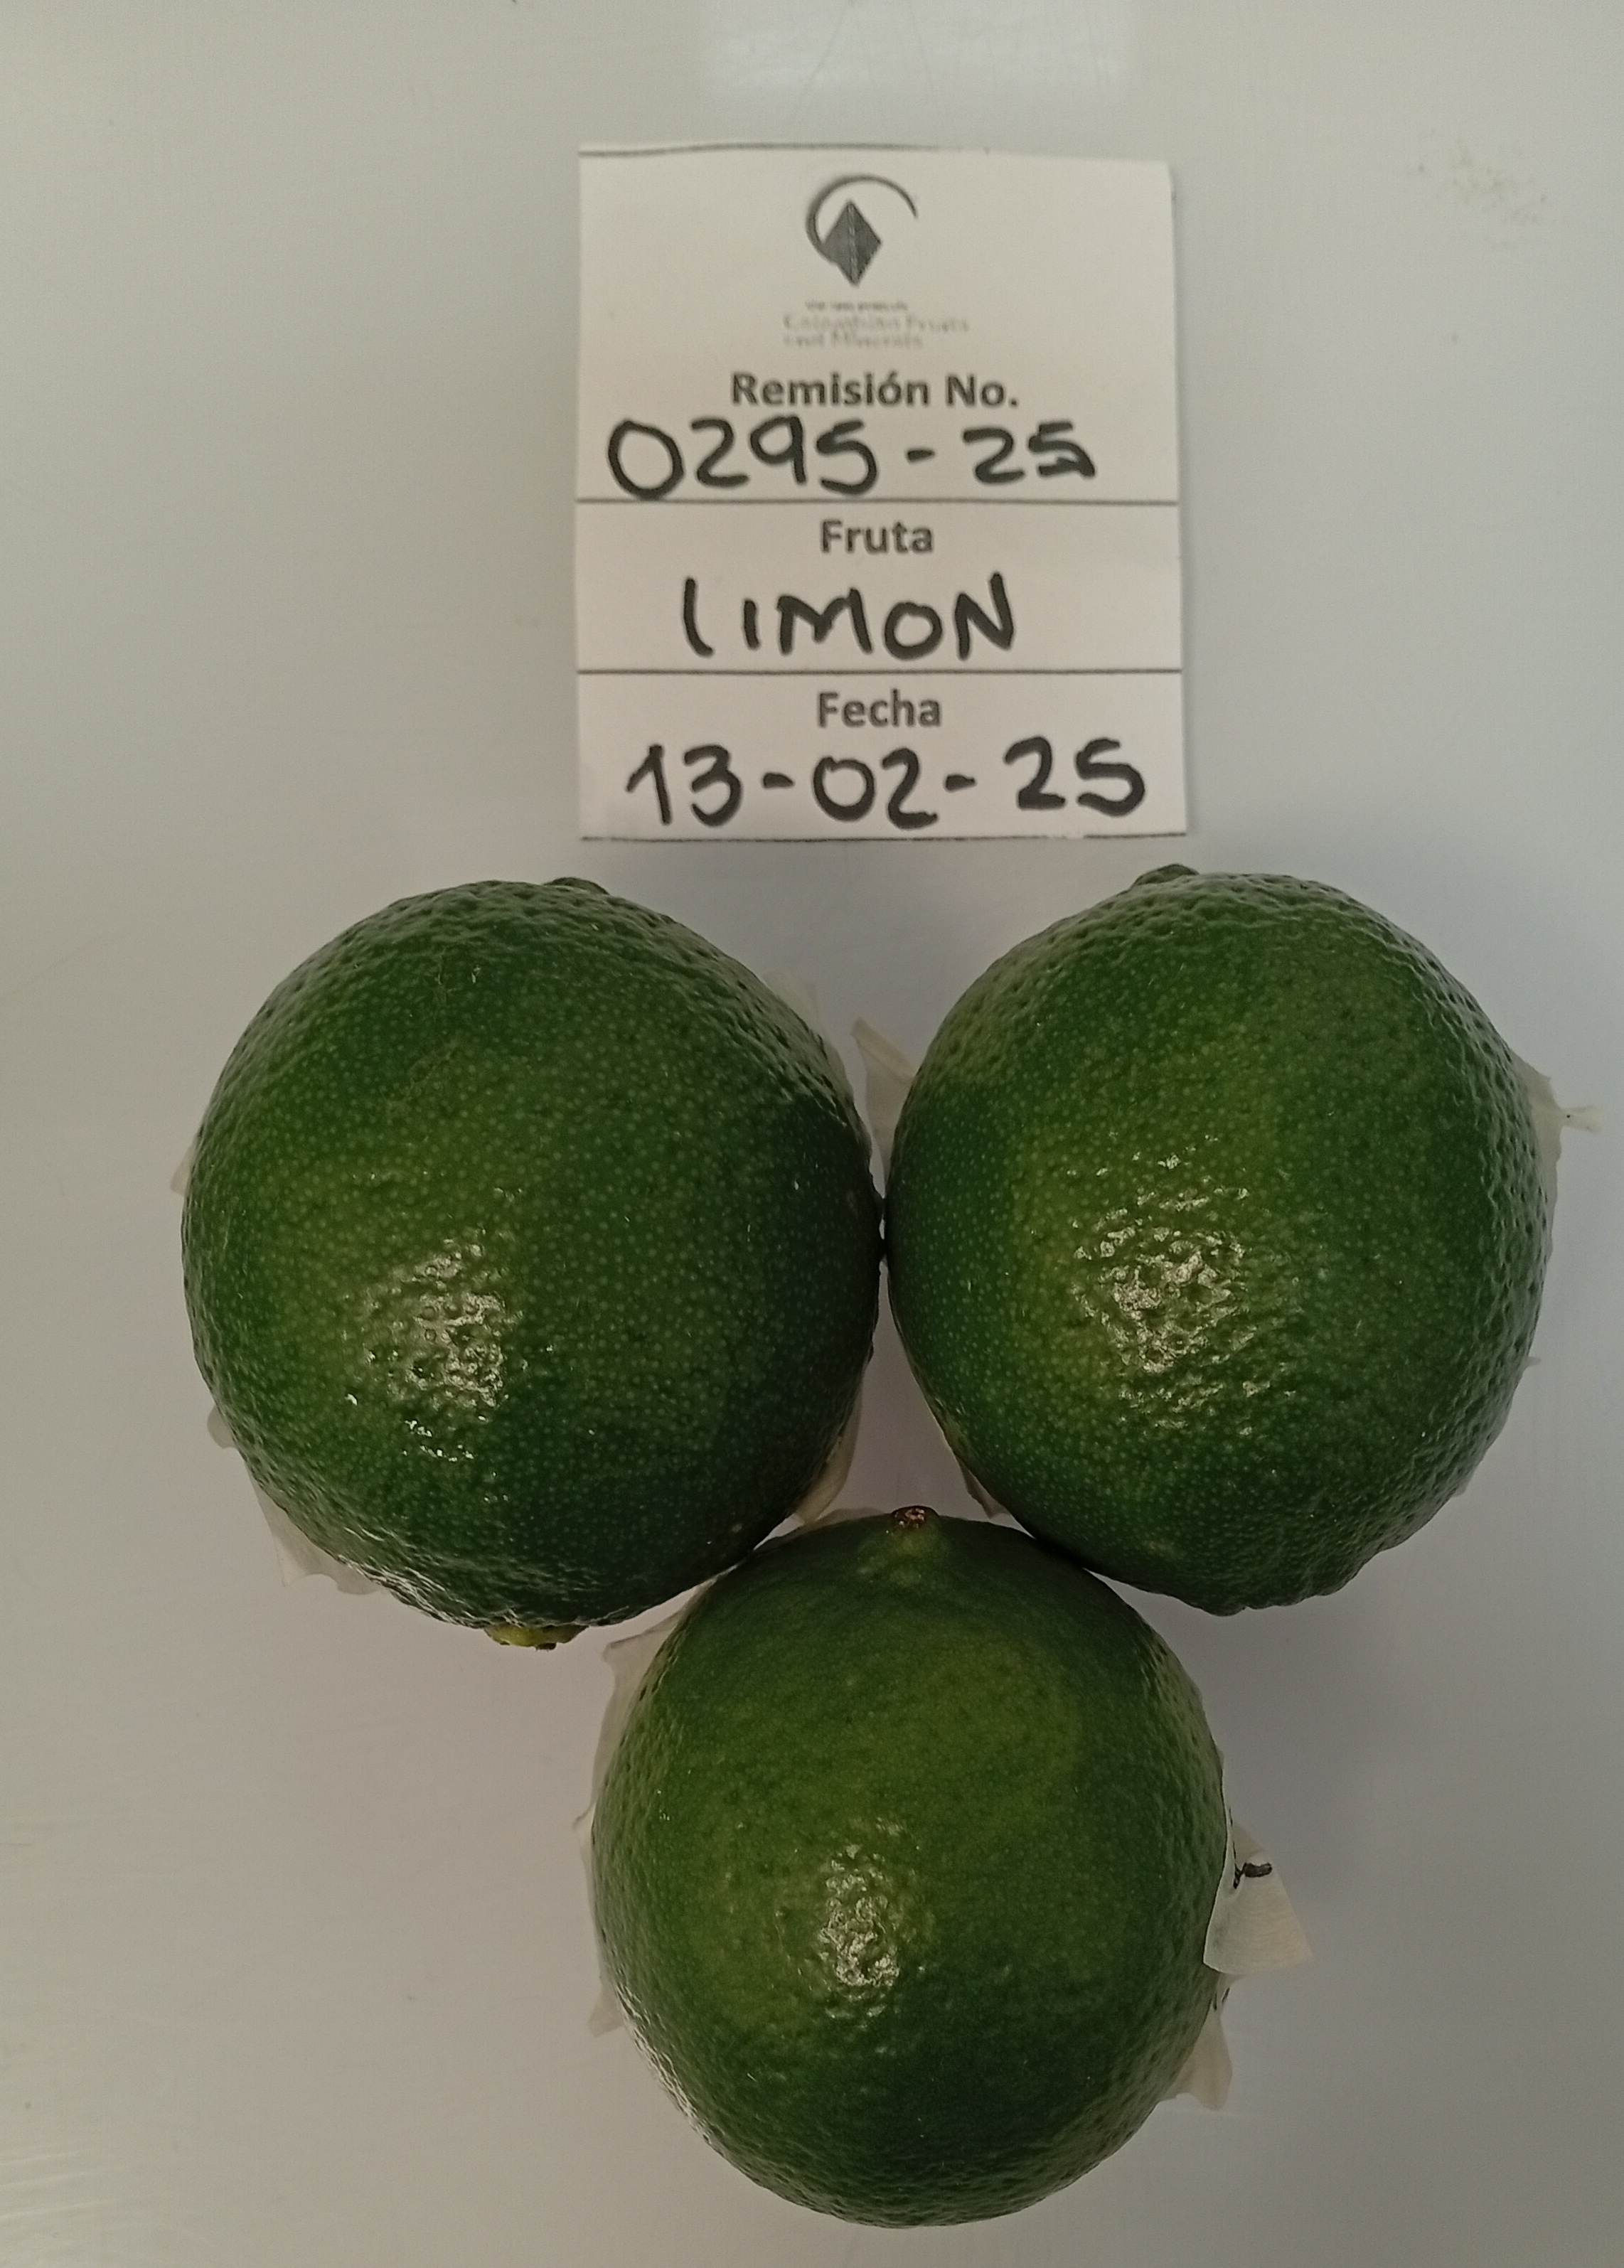 Colombian Fruits
and Minerals
Remisión No.
0295-25
Fruta
LIMON
Fecha
13-02-25